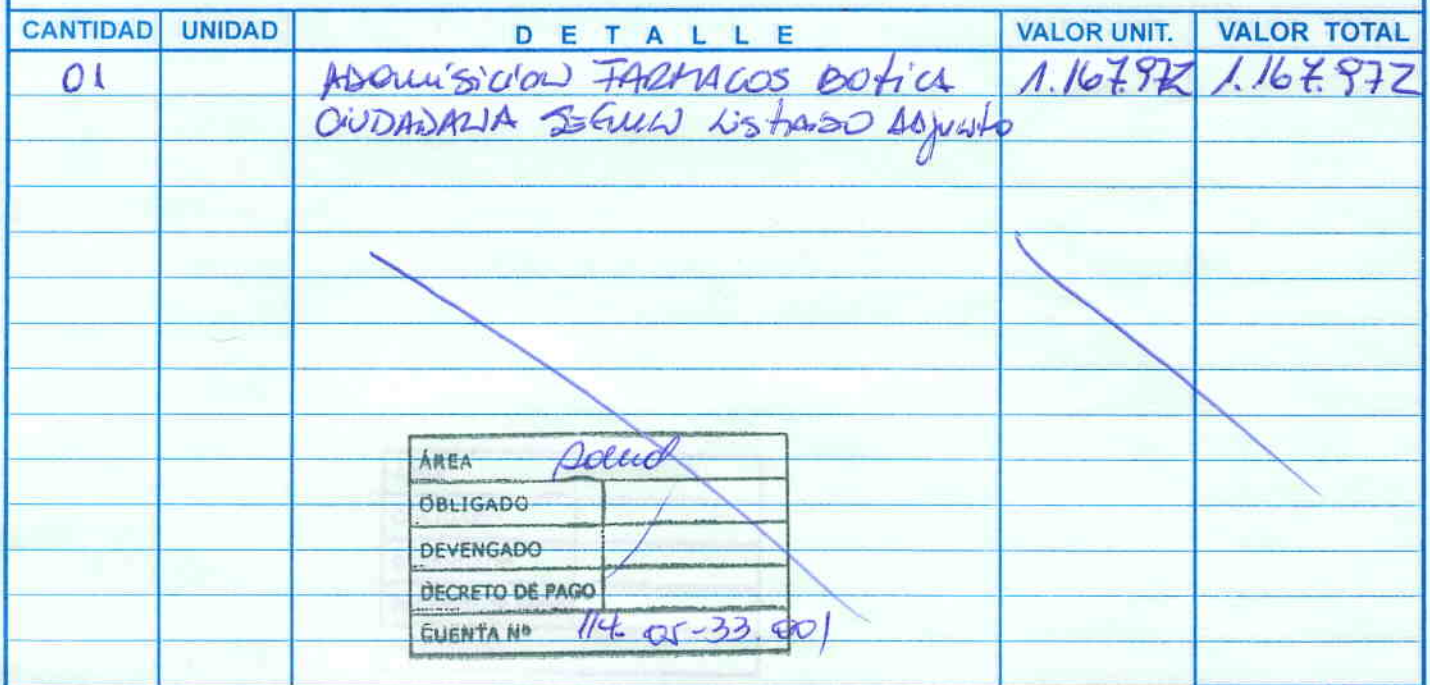 CANTIDAD UNIDAD DETALLE VALOR UNIT. VALOR TOTAL
01 ADQUISICION FARMACOS BOTICA 1.167.972 1.167.972
CIUDADANA SEGUN LISTADO ADJUNTO
ÁREA Salud
OBLIGADO
DEVENGADO
DECRETO DE PAGO
CUENTA Nº 114-05-33.001